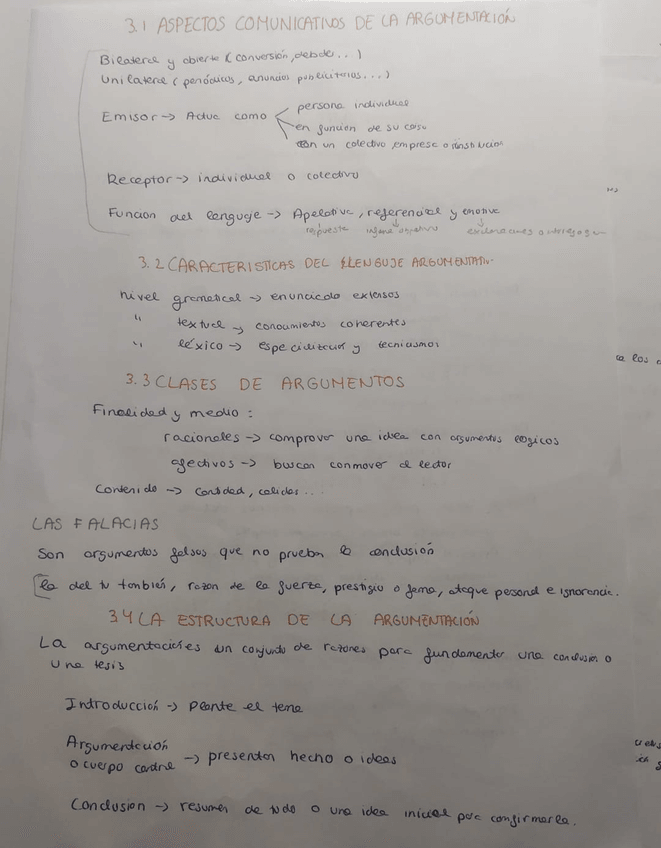 3.1 ASPECTOS COMUNICATIVOS DE LA ARGUMENTACIÓN
Bilateral y abierta (conversión, debate...)
Unilateral (periódicos, anuncios publicitarios...)
Emisor → Actua como
persona individual
en funcion de su
con un colectivo, empresa o institucion
Receptor → individual o colectivo
Funcion del lenguaje → Apelativa, referencial y emotiva
respuesta
exclamaciones o
3.2 CARACTERISTICAS DEL LENGUAJE ARGUMENTATIV
Nivel gramatical → enunciado extensos
" textual y conocimientos coherentes
" léxico → especialización y tecnicismos
3.3 CLASES DE ARGUMENTOS
Finalidad y medio :
racionales → comprovar una idea con argumentos logicos
afectivos → buscan conmover al lector
Contenido → Cantidad, calidad...
LAS FALACIAS
Son argumentos falsos que no prueban la conclusión
la del tu tambien, razon de la fuerza, prestigio o fama, ataque personal e ignorancia.
3.4 LA ESTRUCTURA DE LA ARGUMENTACIÓN
La argumentacion es un conjunto de razones para fundamentar una conclusion o
una tesis
Introducción → Plante el tema
Argumentación
o cuerpo → presentar hecho o ideas
Conclusion → resumen de todo o una idea inicial para confirmarla.